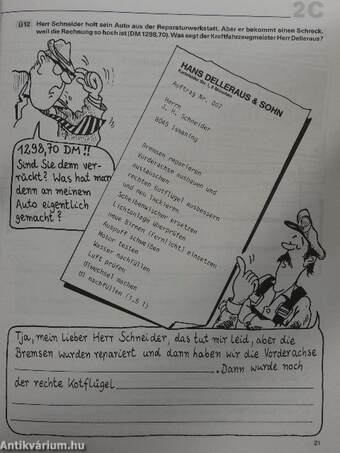 2C
Ü12 Herr Schneider holt sein Auto aus der Reparaturwerkstatt. Aber er bekommt einen Schreck,
weil die Rechnung so hoch ist (DM 1298,70). Was sagt der Kraftfahrzeugmeister Herr Delleraus?
1298,70 DM!!
Sind Sie denn ver-
rückt? Was hat man
denn an meinem
Auto eigentlich
gemacht?
HANS DELLERAUS & SOHN
Auftrag Nr. 007
Herrn
J. H. Schneider
8045 Ismaning
Bremsen reparieren
Vorderachse ausbauen und
austauschen
rechten Kotflügel ausbessern
und neu lackieren
Scheibenwischer ersetzen
Lichtanlage überprüfen
neue Birnen (Fernlicht) einsetzen
Auspuff schweißen
Motor testen
Wasser nachfüllen
Luft prüfen
Ölwechsel machen
Öl nachfüllen (1,5 l)
Tja, mein lieber Herr Schneider, das tut mir leid, aber die
Bremsen wurden repariert und dann haben wir die Vorderachse
. Dann wurde noch
der rechte Kotflügel
21
Antikvárium.hu